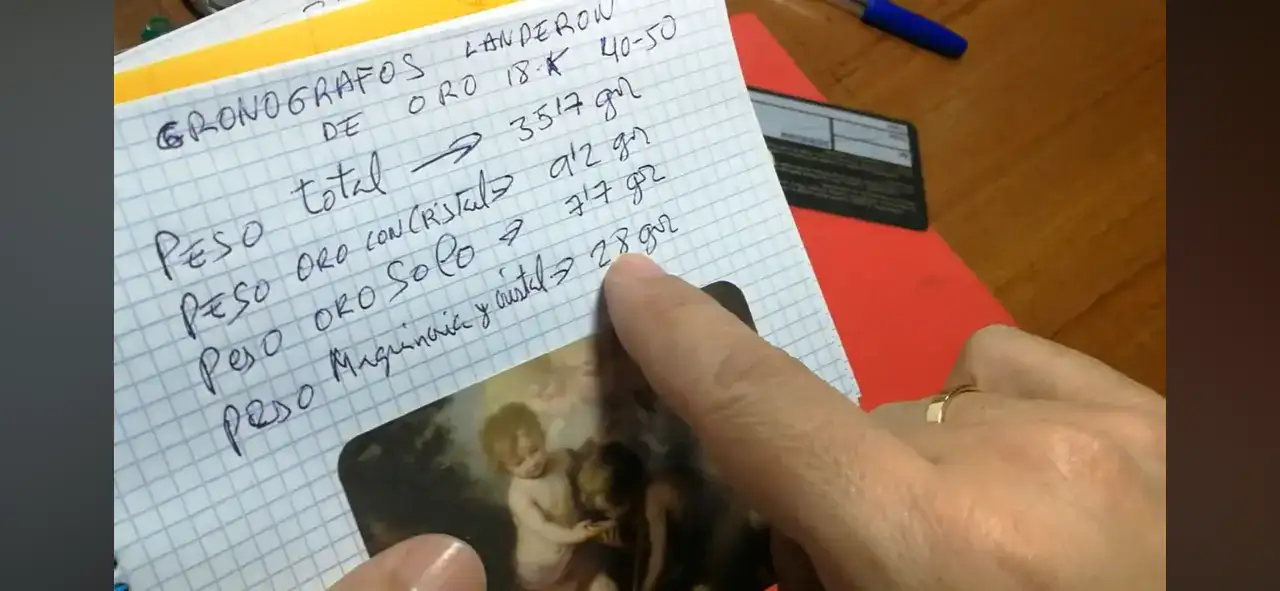 CRONOGRAFOS LANDERON
DE ORO 18 K 40-50
PESO total → 35'7 gr
PESO ORO CON CRISTAL → 9'2 gr
PESO ORO SOLO → 7'7 gr
PESO Maquinaria y cristal → 28 gr